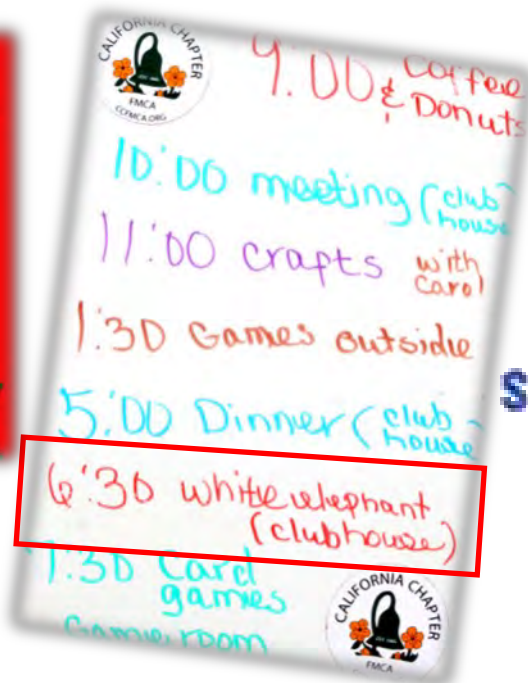 CALIFORNIA CHAPTER
FMCA
CCFMCA.ORG
9:00 Coffee
& Donuts
10:00 meeting (club-
house
11:00 crafts with
Carol
1:30 Games outside
5:00 Dinner (club-
house
6:30 white elephant
(clubhouse)
7:30 Card
games
Game room
CALIFORNIA CHAPTER
FMCA
S